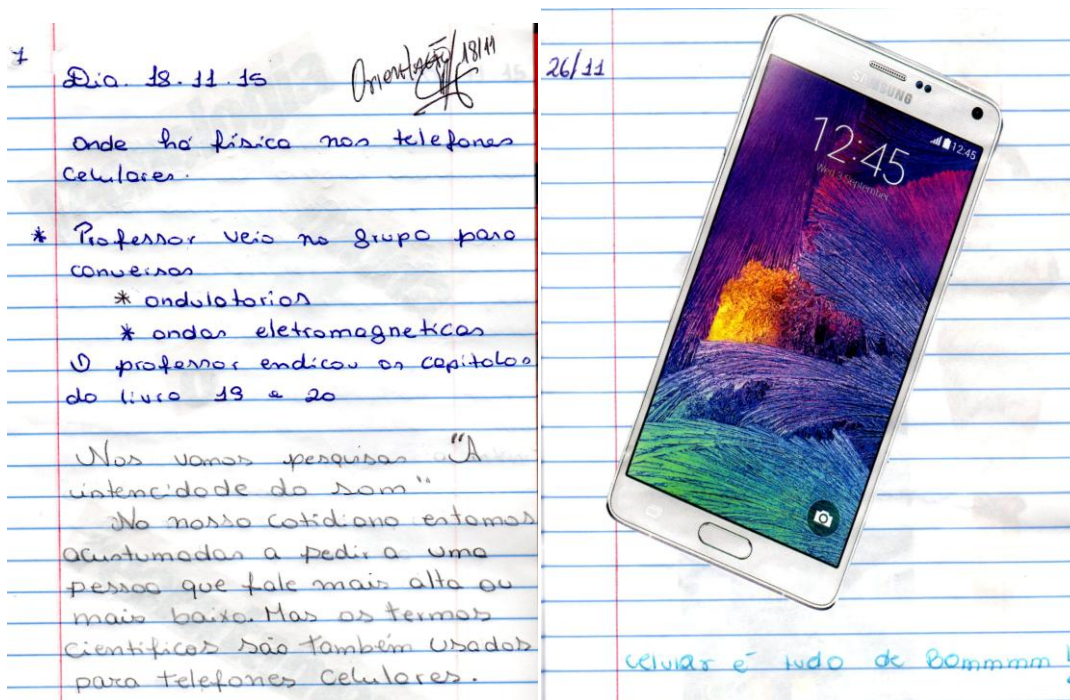 1
Dia. 18.11.15
Orientação 18/11
onde há física nos telefones
Celulares.
* Professor veio no grupo para
conversar
* ondulatorios
* ondas eletromagneticas
O professor endicou os capitolos
do livro 19 e 20
Nos vamos pesquisar "A
intencidade do som"
No nosso cotidiano estamos
acustumados a pedir a uma
pessoa que fale mais alto ou
mais baixo. Mas os termos
cientificos são também usados
para telefones Celulares.
26/11
SAMSUNG
12:45
12:45
Wed, 3 September
celular é tudo de Bommmm!